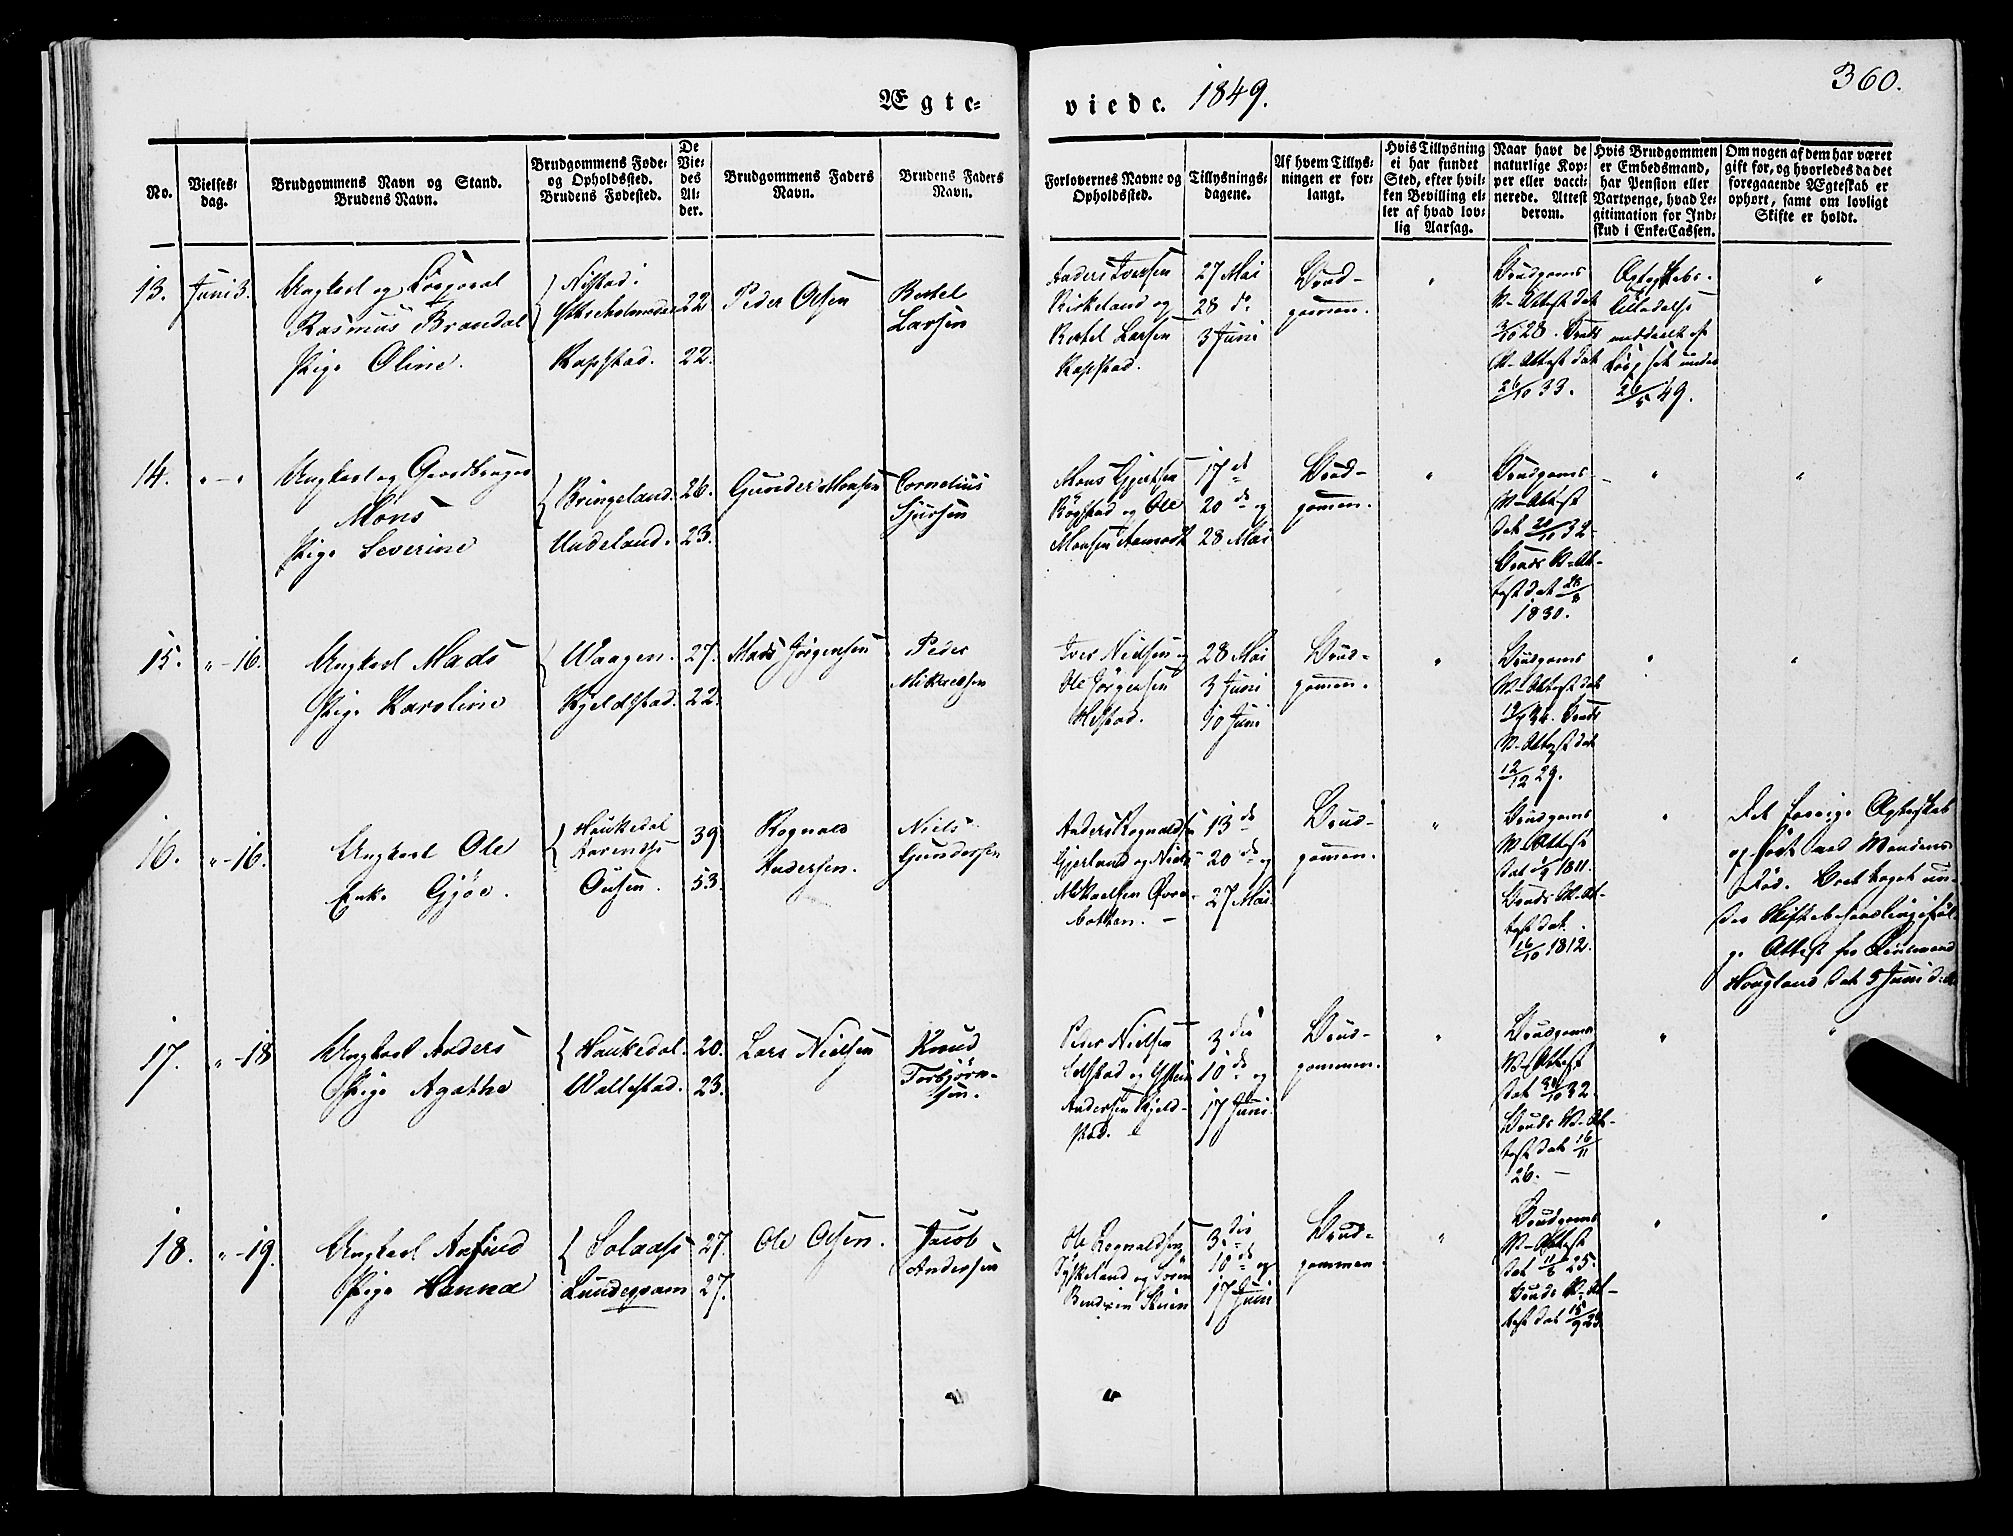 360.
Ægte-
viede. 1849.
No.
Vielses-
dag.
Brudgommens Navn og Stand.
Brudens Navn.
Brudgommens Føde-
og Opholdssted.
Brudens Fødested.
De
Vie-
des
Al-
der.
Brudgommens Faders
Navn.
Brudens Faders
Navn.
Forlovernes Navne og
Opholdssted.
Tillysnings-
dagene.
Af hvem Tillys-
ningen er for-
langt.
Hvis Tillysning
ei har fundet
Sted, efter hvil-
ken Bevilling el-
ler af hvad lov-
lig Aarsag.
Naar havt de
naturlige Kop-
per eller vacci-
nerede. Attest
derom.
Hvis Brudgommen
er Embedsmand,
har Pension eller
Vartpenge, hvad Le-
gitimation for Ind-
skud i Enke-Cassen.
Om nogen af dem har været
gift før, og hvorledes da det
foregaaende Ægteskab er
ophørt, samt om lovligt
Skifte er holdt.
13. Juni 3.
Ungkarl og Corporal
Rasmus Brandal
Pige Oline.
Nistad i
22
Kapstad. 22.
Peder Olsen
Bertel
Larsen
Anders Iversen
Kirkeland og
Bertel Larsen
Kapstad.
27 Mai
28 d.
3 Juni
Brud-
gomen.
"
Brudgoms
V-Attest dat
3/10 28. Bruds
V-Attest dat
26/10 33.
Ægteskabs-
Tilladelse
meddeelt af
26/5 49.
"
14. " - "
Ungkarl og Gaardbruger
Mons
Pige Severine
Bringeland. 26.
Undeland. 23.
Gunder Monsen
Cornelius
Sjursen
Mons Gjertsen
Rogstad og Ole
Monsen
17 d
20 d og
28 Mai
Brud-
gomen.
"
Brudgoms
V-Attest
dat 32
Bruds V-At-
test dat
1830.
"
"
15. " - 16.
Ungkarl Mads
Pige Karoline
Waagen. 27.
Kjeldstad. 22.
Mads Jörgensen
Peder
Mikkelsen
Iver Nielsen og
Ole Jörgensen
28 Mai
3 Juni
10 Juni
Brud-
gomen.
"
Brudgoms
V-Attest dat
Bruds
V-Attest dat
12/12 29.
"
"
16. " - 16.
Ungkarl Ole
Enke Gjöe.
Haukedal
39
53.
Rognald
Andersen.
Niels
Gundersen
Anders Rognaldsen
Gjerland og Niels
Mikkelsen
botten. -
13 de
20 de og
27 Mai
Brud-
gomen.
"
Brudgoms
V-Attest
1811.
Bruds V-At-
test dat
16/10 1812.
"
Det forrige Ægteskab
ophört ved Mandens
Död. Boet taget un-
der Skiftebehandling iföl-
ge Attest fra Lensmand
Hougland dat 5 Juni d.A.
17. " - 18
Ungkarl Anders
Pige Agathe
Haukedal. 20.
Wallestad. 23.
Lars Nielsen
Knud
Torbjörn-
sen.
Peder Nielsen
Andersen Kjeld-
stad.
3 die
10 de og
17 Juni.
Brud-
gommen.
"
Brudgoms
V-Attest
dat 32.
Bruds V-At-
test dat 16/11
26. -
"
"
18. " - 19.
Ungkarl
Pige Hanna
27.
27.
Ole Olsen.
Jacob
Andersen
Ole Rognaldsen
3 die
10 de og
17 Juni
Brud-
gommen.
"
Brudgoms
V-Attest
dat 11/8 25.
Bruds V-At-
test dat 15/9 23.
"
"